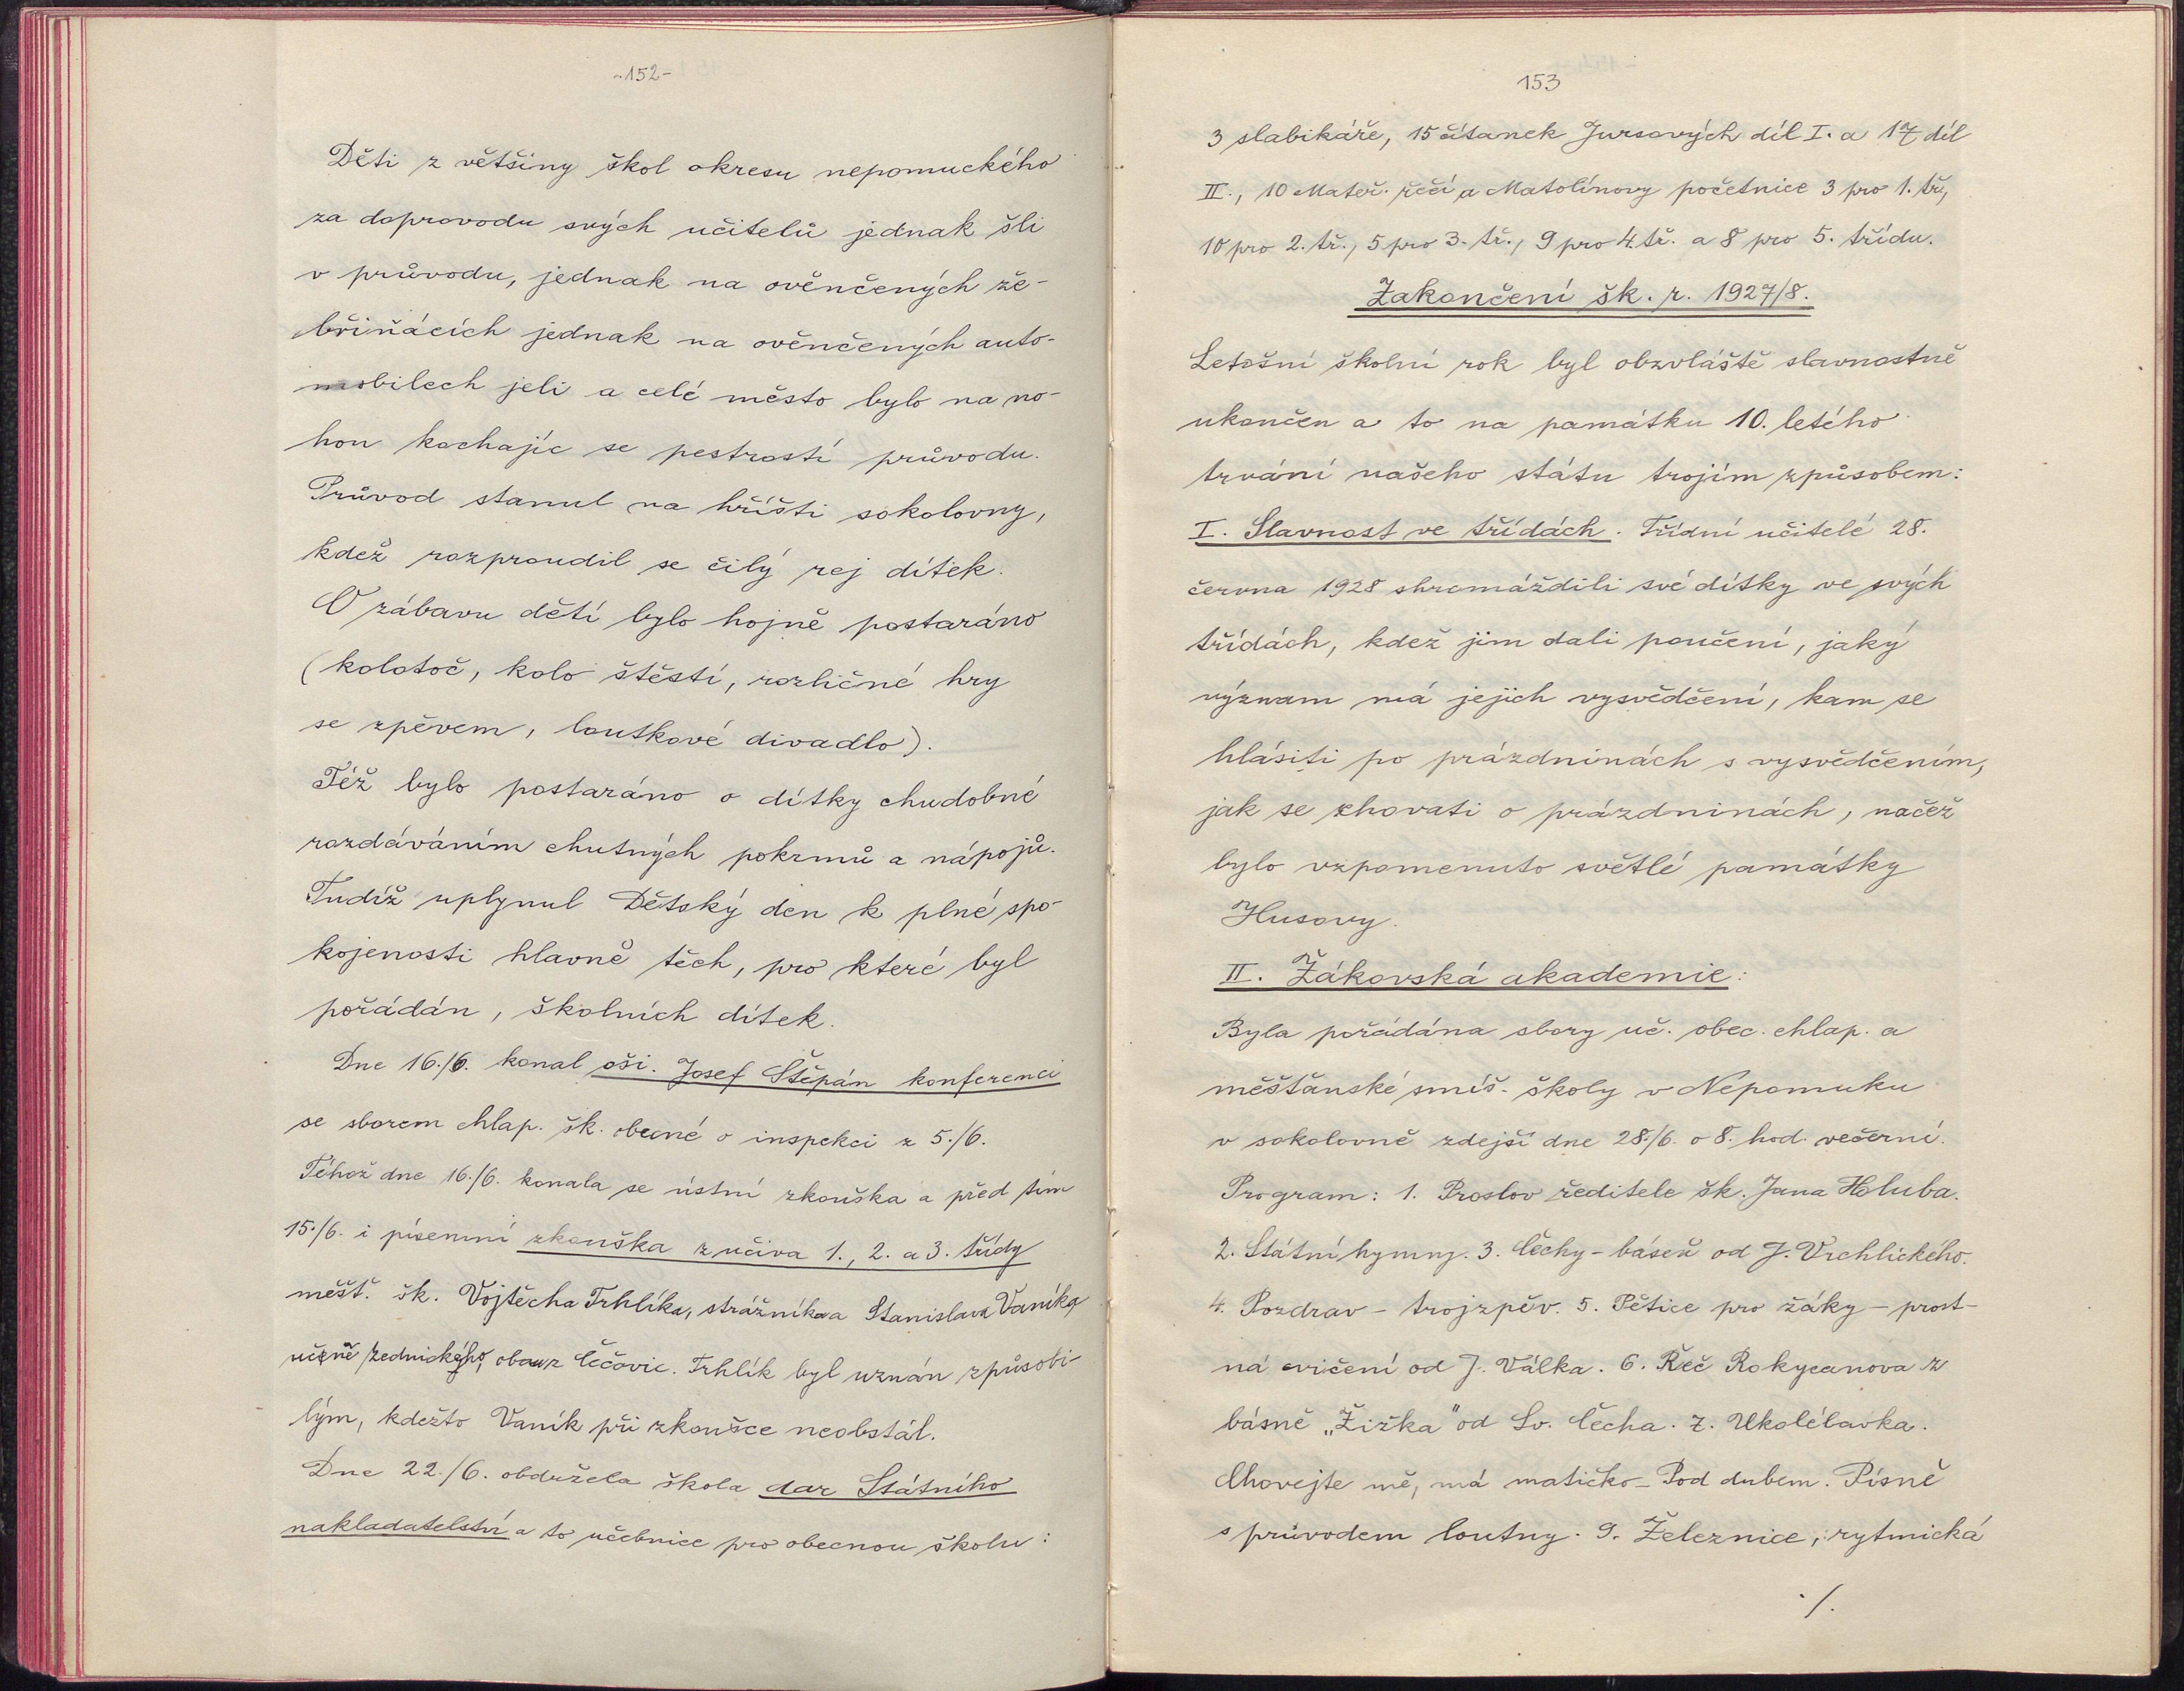 -152-
Děti z většiny škol okresu nepomuckého
za doprovodu svých učitelů jednak šli
v průvodu, jednak na ověnčených že-
břiňácích jednak na ověnčených auto-
mobilech jeli a celé město bylo na no-
hou kochajíc se pestrostí průvodu.
Průvod stanul na hřišti sokolovny,
kdež rozproudil se čilý rej dítek.
O zábavu dětí bylo hojně postaráno
(kolotoč, kolo štěstí, rozličné hry
se zpěvem, loutkové divadlo).
Též bylo postaráno o dítky chudobné
rozdáváním chutných pokrmů a nápojů.
Tudíž uplynul Dětský den k plné spo-
kojenosti hlavně těch, pro které byl
pořádán, školních dítek.
Dne 16./6. konal oši. Josef Štěpán konferenci
se sborem chlap. šk. obecné o inspekci z 5./6.
Téhož dne 16./6. konala se ústní zkouška a před tím
15./6. i písemní zkouška z učiva 1., 2. a 3. třídy
měšť. šk. Vojtěcha Trhlíka, strážníka a Stanislava Vaníka
učně zednického, obou z Čečovic. Trhlík byl uznán způsobi-
lým, kdežto Vaník při zkoušce neobstál.
Dne 22./6. obdržela škola dar Státního
nakladatelství a to učebnice pro obecnou školu:
153
3 slabikáře, 15 čítanek Jursových díl I. a 17 díl
II., 10 Mateř. řečí a Matolínovy početnice 3 pro 1. tř.,
10 pro 2. tř., 5 pro 3. tř., 9 pro 4. tř. a 8 pro 5. třídu.
Zakončení šk. r. 1927/8.
Letošní školní rok byl obzvláště slavnostně
ukončen a to na památku 10. letého
trvání našeho státu trojím způsobem:
I. Slavnost ve třídách. Třídní učitelé 28.
června 1928 shromáždili své dítky ve svých
třídách, kdež jim dali poučení, jaký
význam má jejich vysvědčení, kam se
hlásiti po prázdninách s vysvědčením,
jak se chovati o prázdninách, načež
bylo vzpomenuto světlé památky
Husovy.
II. Žákovská akademie:
Byla pořádána sbory uč. obec. chlap. a
měšťanské smíš. školy v Nepomuku
v sokolovně zdejší dne 28./6. o 8. hod. večerní.
Program: 1. Proslov ředitele šk. Jana Holuba.
2. Státní hymny. 3. Čechy - báseň od J. Vrchlického.
4. Pozdrav - trojzpěv. 5. Pětice pro žáky - prost-
ná cvičení od J. Válka. 6. Řeč Rokycanova z
básně „Žižka" od Sv. Čecha. 7. Ukolébavka.
Chovejte mě, má matičko - Pod dubem. Písně
s průvodem loutny. 9. Železnice, rytmická
./.